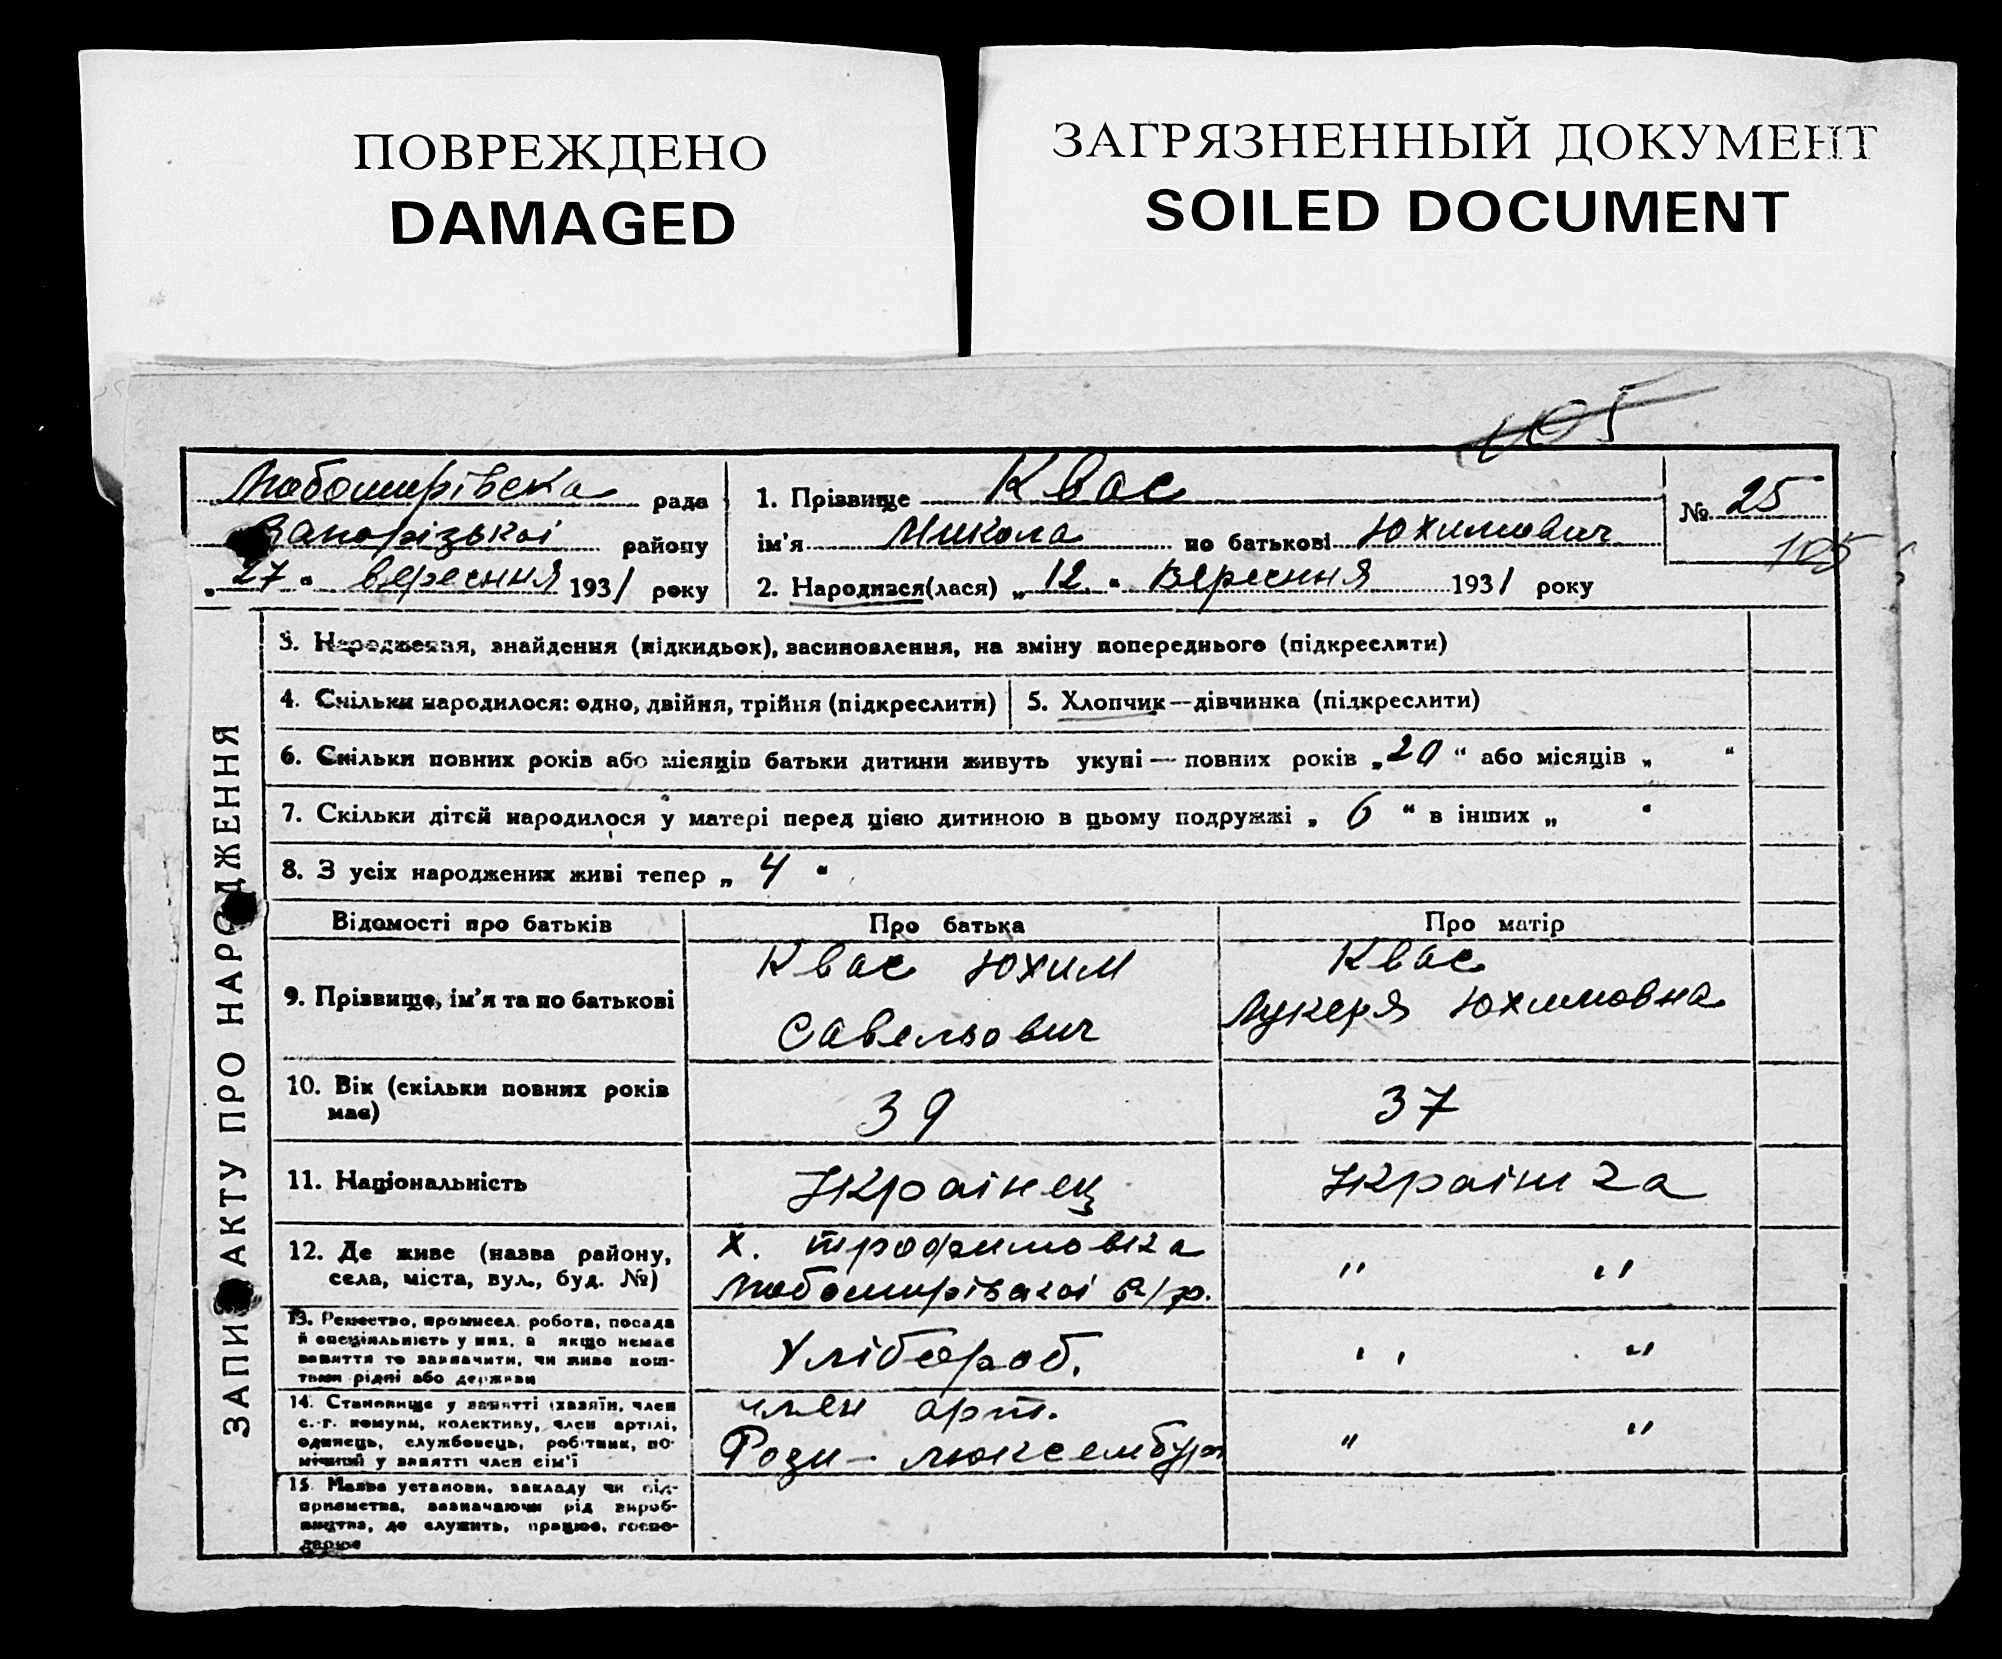 ПОВРЕЖДЕНО
DAMAGED
ЗАГРЯЗНЕННЫЙ ДОКУМЕНТ
SOILED DOCUMENT
105
Любомирівська рада
Запорізької району
„27“ вересня 1931 року
1. Прізвище Квас
ім'я Микола по батькові Юхимович
2. Народився(лася) „12“ Вересня 1931 року
№ 25
105
ЗАПИС АКТУ ПРО НАРОДЖЕННЯ
3. Народження, знайдення (підкидьок), засиновлення, на зміну попереднього (підкреслити)
4. Скільки народилося: одно, двійня, трійня (підкреслити)
5. Хлопчик—дівчинка (підкреслити)
6. Скільки повних років або місяців батьки дитини живуть укупі — повних років „20“ або місяців „ “
7. Скільки дітей народилося у матері перед цією дитиною в цьому подружжі „ 6 “ в інших „ “
8. З усіх народжених живі тепер „ 4 “
Відомості про батьків
Про батька
Про матір
9. Прізвище, ім'я та по батькові
Квас Юхим
Савельович
Квас
Лукеря Юхимовна
10. Вік (скільки повних років
має)
39
37
11. Національність
Українец
Українка
12. Де живе (назва району,
села, міста, вул., буд. №)
х. Трофимовка
Любомирівської с/р.
" "
13. Ремество, промисел, робота, посада
й спеціяльність у них, а якщо немає
заняття то зазначити, чи живе кош-
тами рідні або держави
Хлібороб.
" "
14. Становище у занятті (хазяїн, член
с.-г. комуни, колективу, член артілі,
одинець, службовець, робітник, по-
мічний у занятті член сім'ї
член арт.
Рози-Люксембург
" "
15. Назва установи, закладу чи під-
приємства, зазначаючи рід вироб-
ництва, де служить, працює, госпо-
дарює